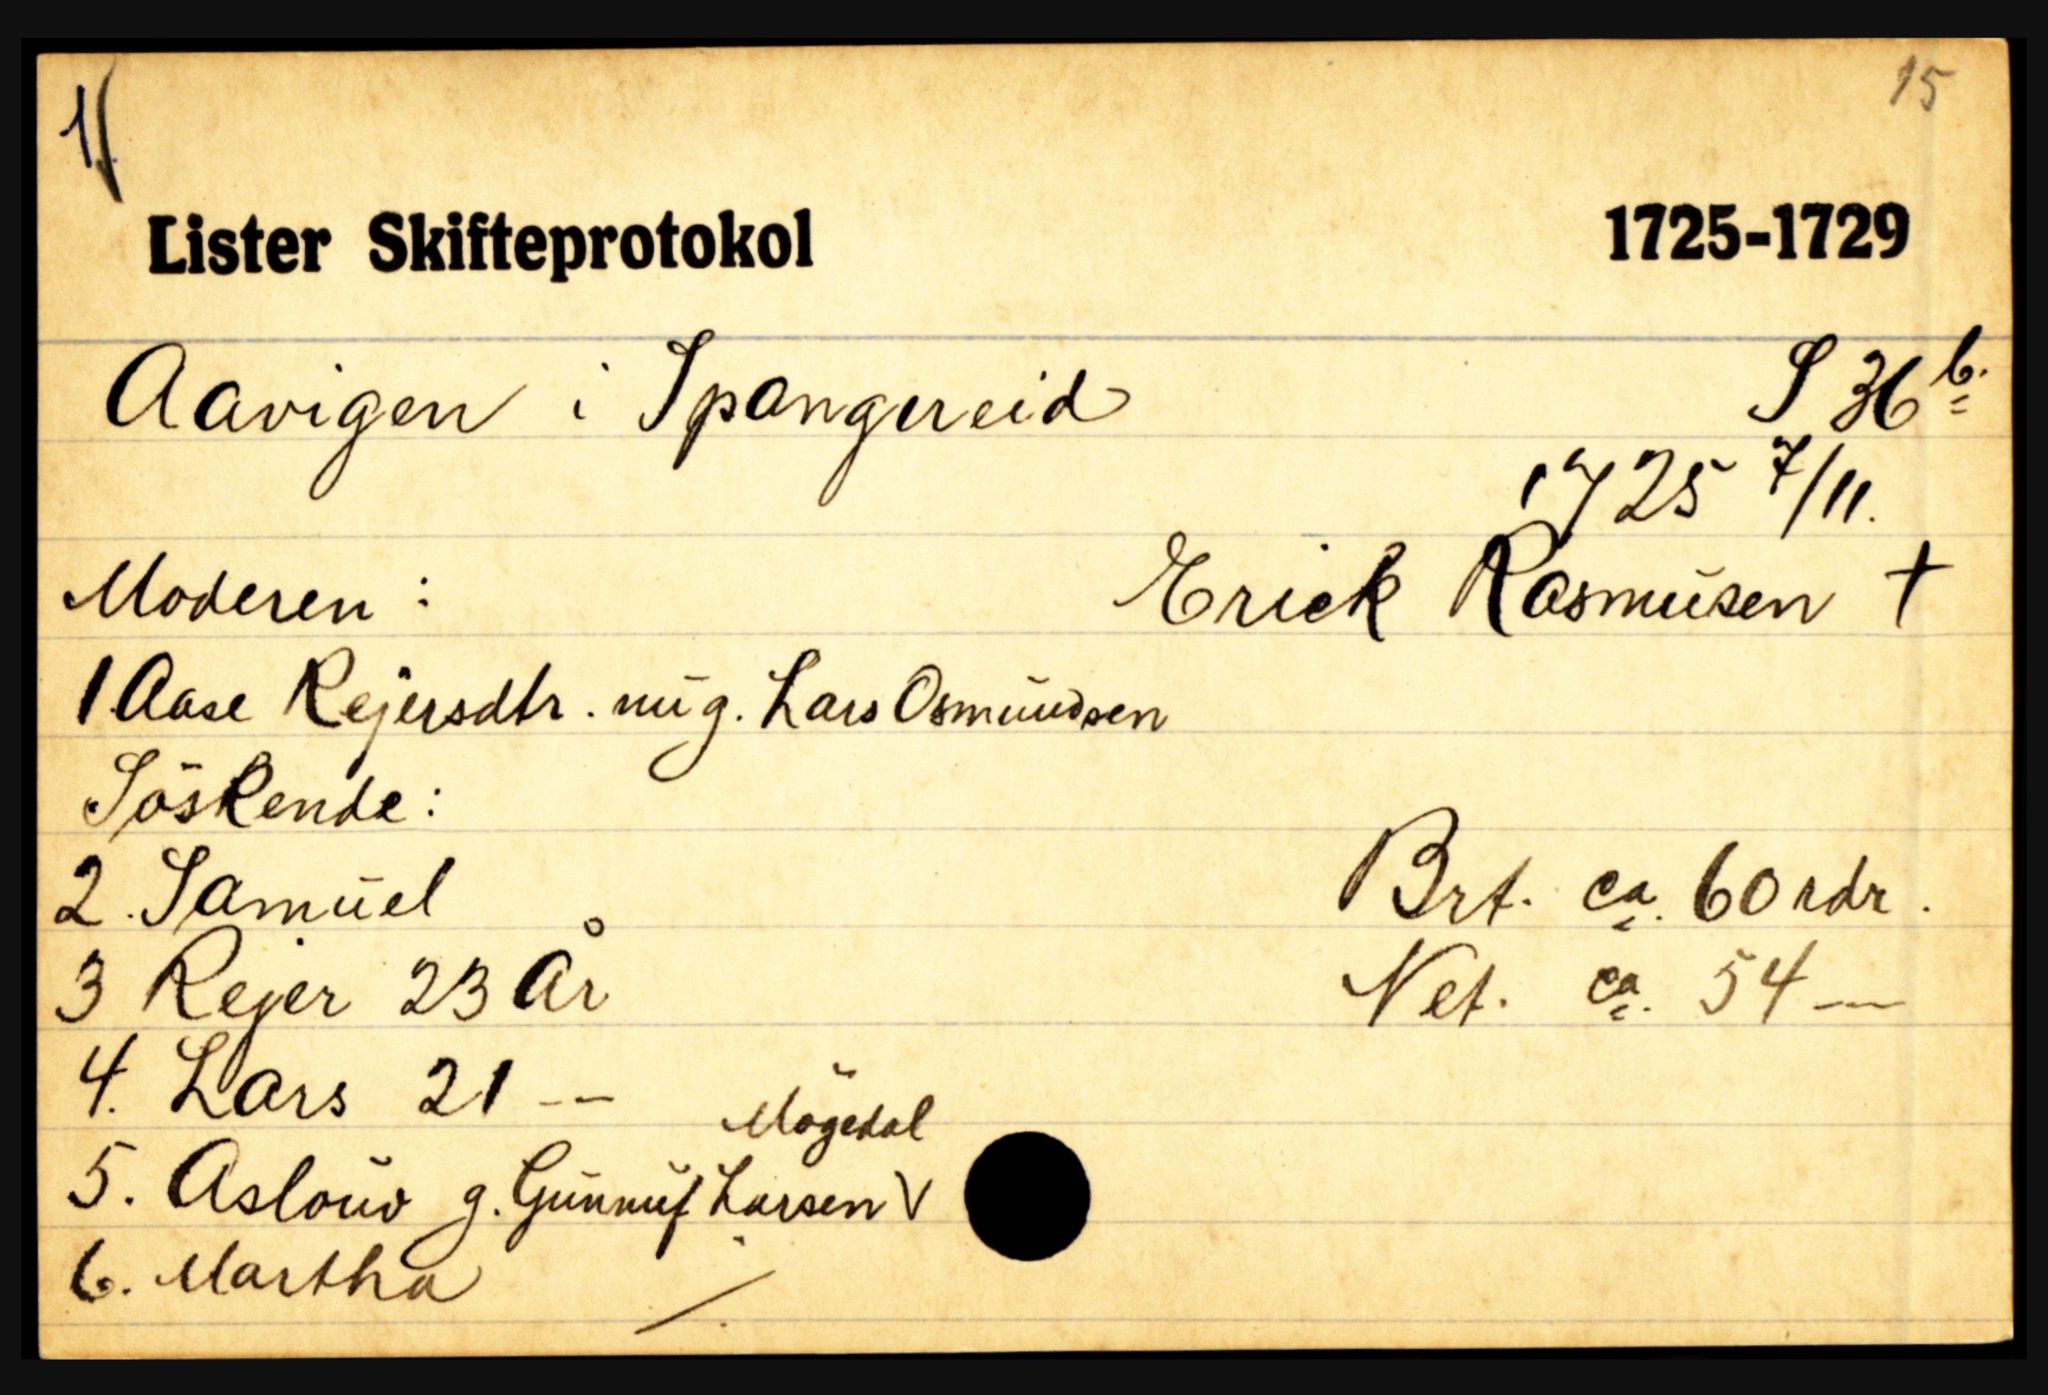 1
15
Lister Skifteprotokol 1725-1729
Aavigen i Spangereid S 36 b.
1725 7/11.
Moderen : Erick Rasmusen †
1 Aase Rejersdtr. nu g. Lars Osmundsen
Söskende :
2. Samuel Brt. ca. 60 rdr.
3 Rejer 23 År Net. ca. 54 —
4. Lars 21 —
Mögedal
5. Aslouv g. Gunnuf Larsen V
6. Martha